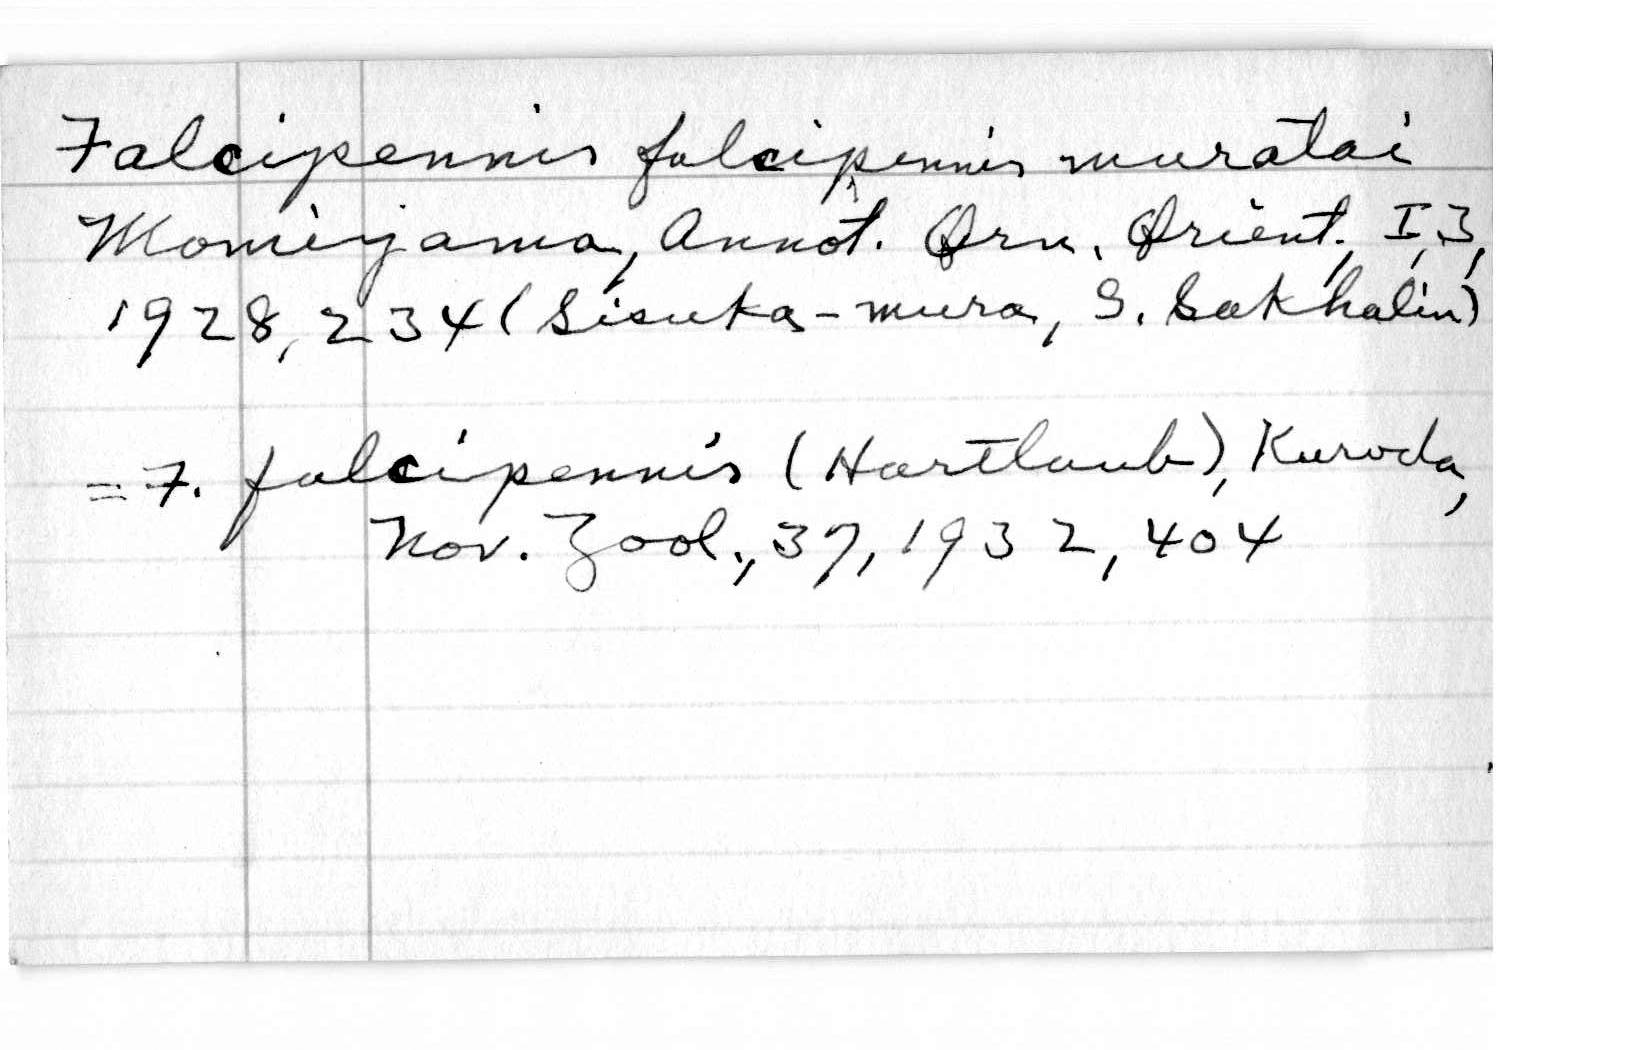 Falcipennis falcipennis muratai
Momiyama, Annot. Orn. Orient., I, 3,
1928, 234 (Sisuka-mura, S. Sakhalin)
= F. falcipennis (Hartlaub), Kuroda,
Nov. Zool., 37, 1932, 404